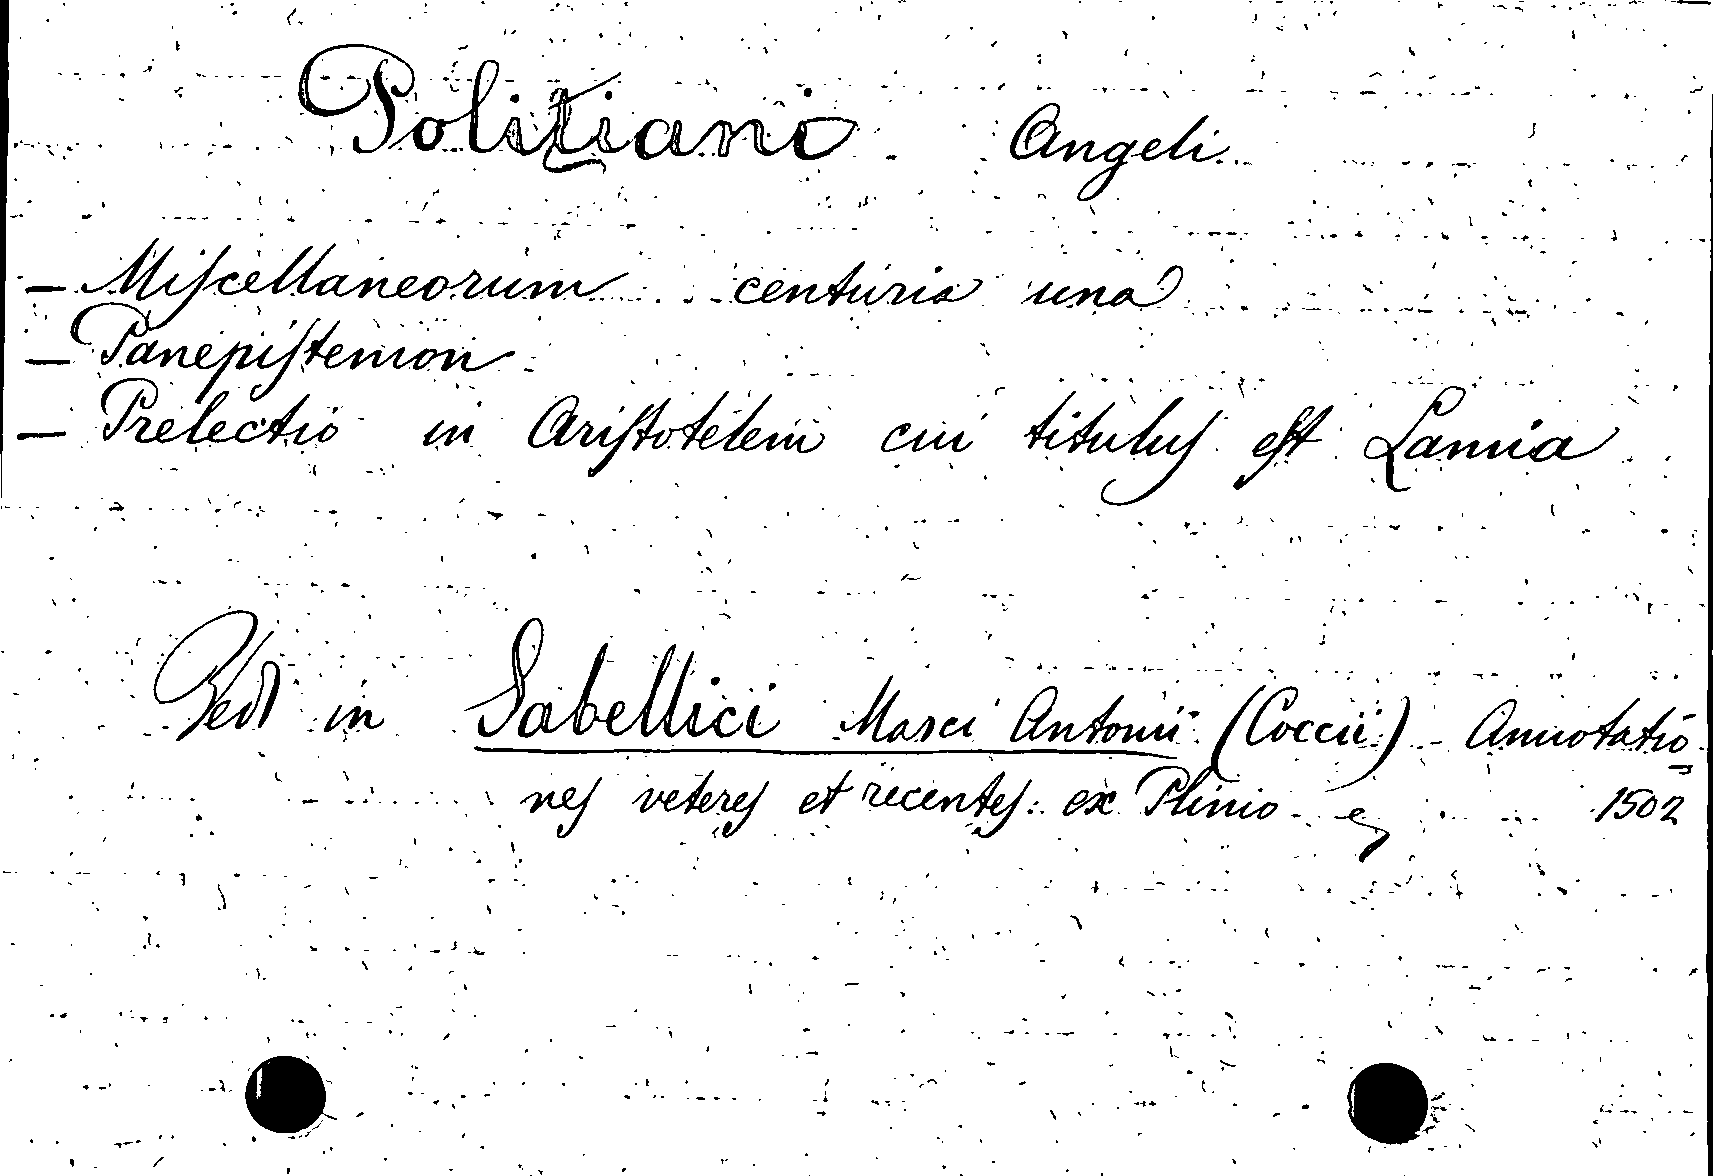 Politiano Angeli
– Miſcellaneorum centuria una
– Panepiſtemon
– Prelectio in Ariſtotelem cui tituluſ eſt Lamia
Vedi in Sabellici Marci Antonii (Coccii) Annotatio=
neſ vetereſ et recenteſ: ex Plinio 1502